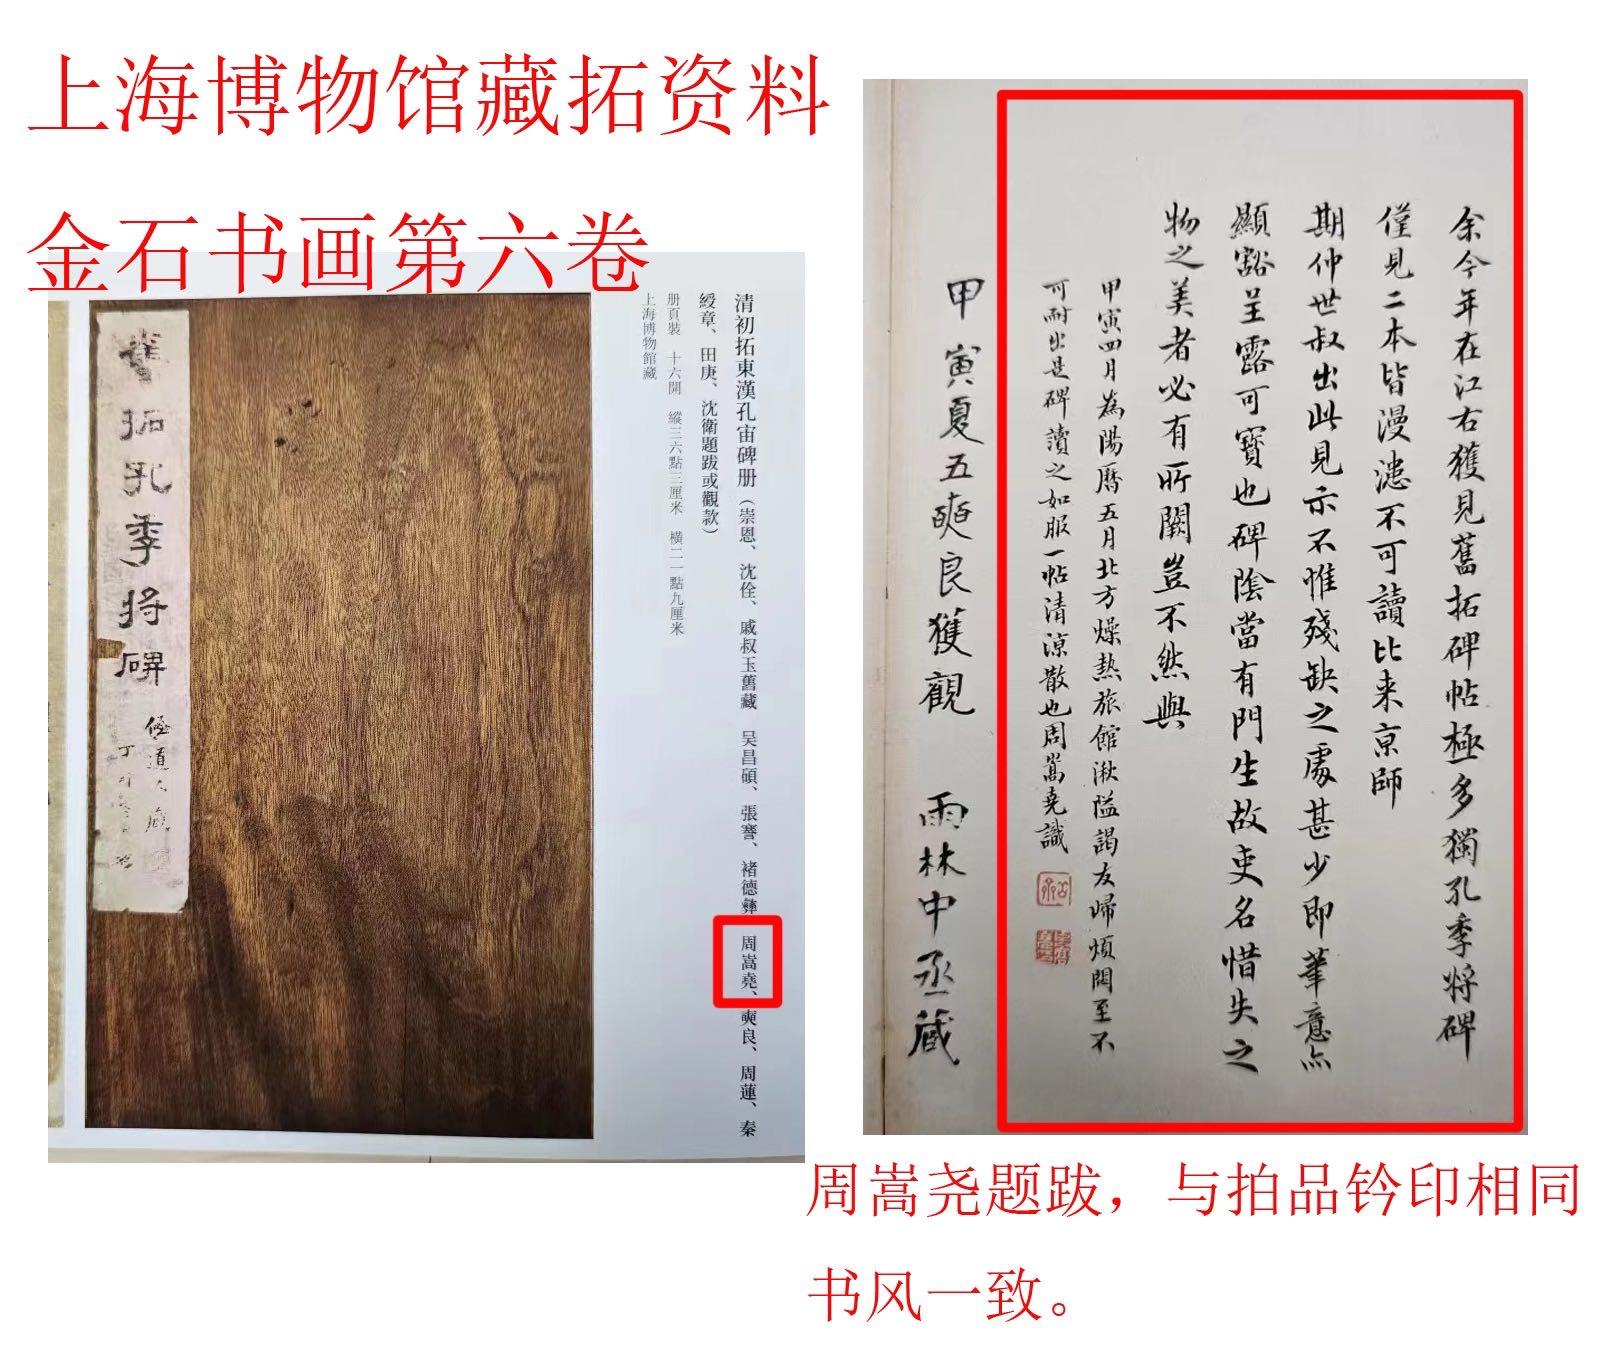 上海博物馆藏拓资料
金石书画第六卷
清初拓東漢孔宙碑册（崇恩、沈佺、戚叔玉舊藏　吴昌碩、張謇、褚德彝、周嵩堯、奭良、周蓮、秦
綬章、田庚、沈衛題跋或觀款）
册頁裝　十六開　縱三六點三厘米　横二一點九厘米
上海博物館藏
舊拓孔季将碑
余今年在江右獲見舊拓碑帖極多獨孔季将碑
僅見二本皆漫漶不可讀比来京師
期仲世叔出此見示不惟殘缺之處甚少即筆意亦
顯豁呈露可寶也碑陰當有門生故吏名惜失之
物之美者必有所闕豈不然與
甲寅四月為陽曆五月北方燥熱旅館湫隘謁友歸煩悶至不
可耐出是碑讀之如服一帖清凉散也周嵩堯識
甲寅夏五奭良獲觀　雨林中丞藏
周嵩尧题跋，与拍品钤印相同
书风一致。